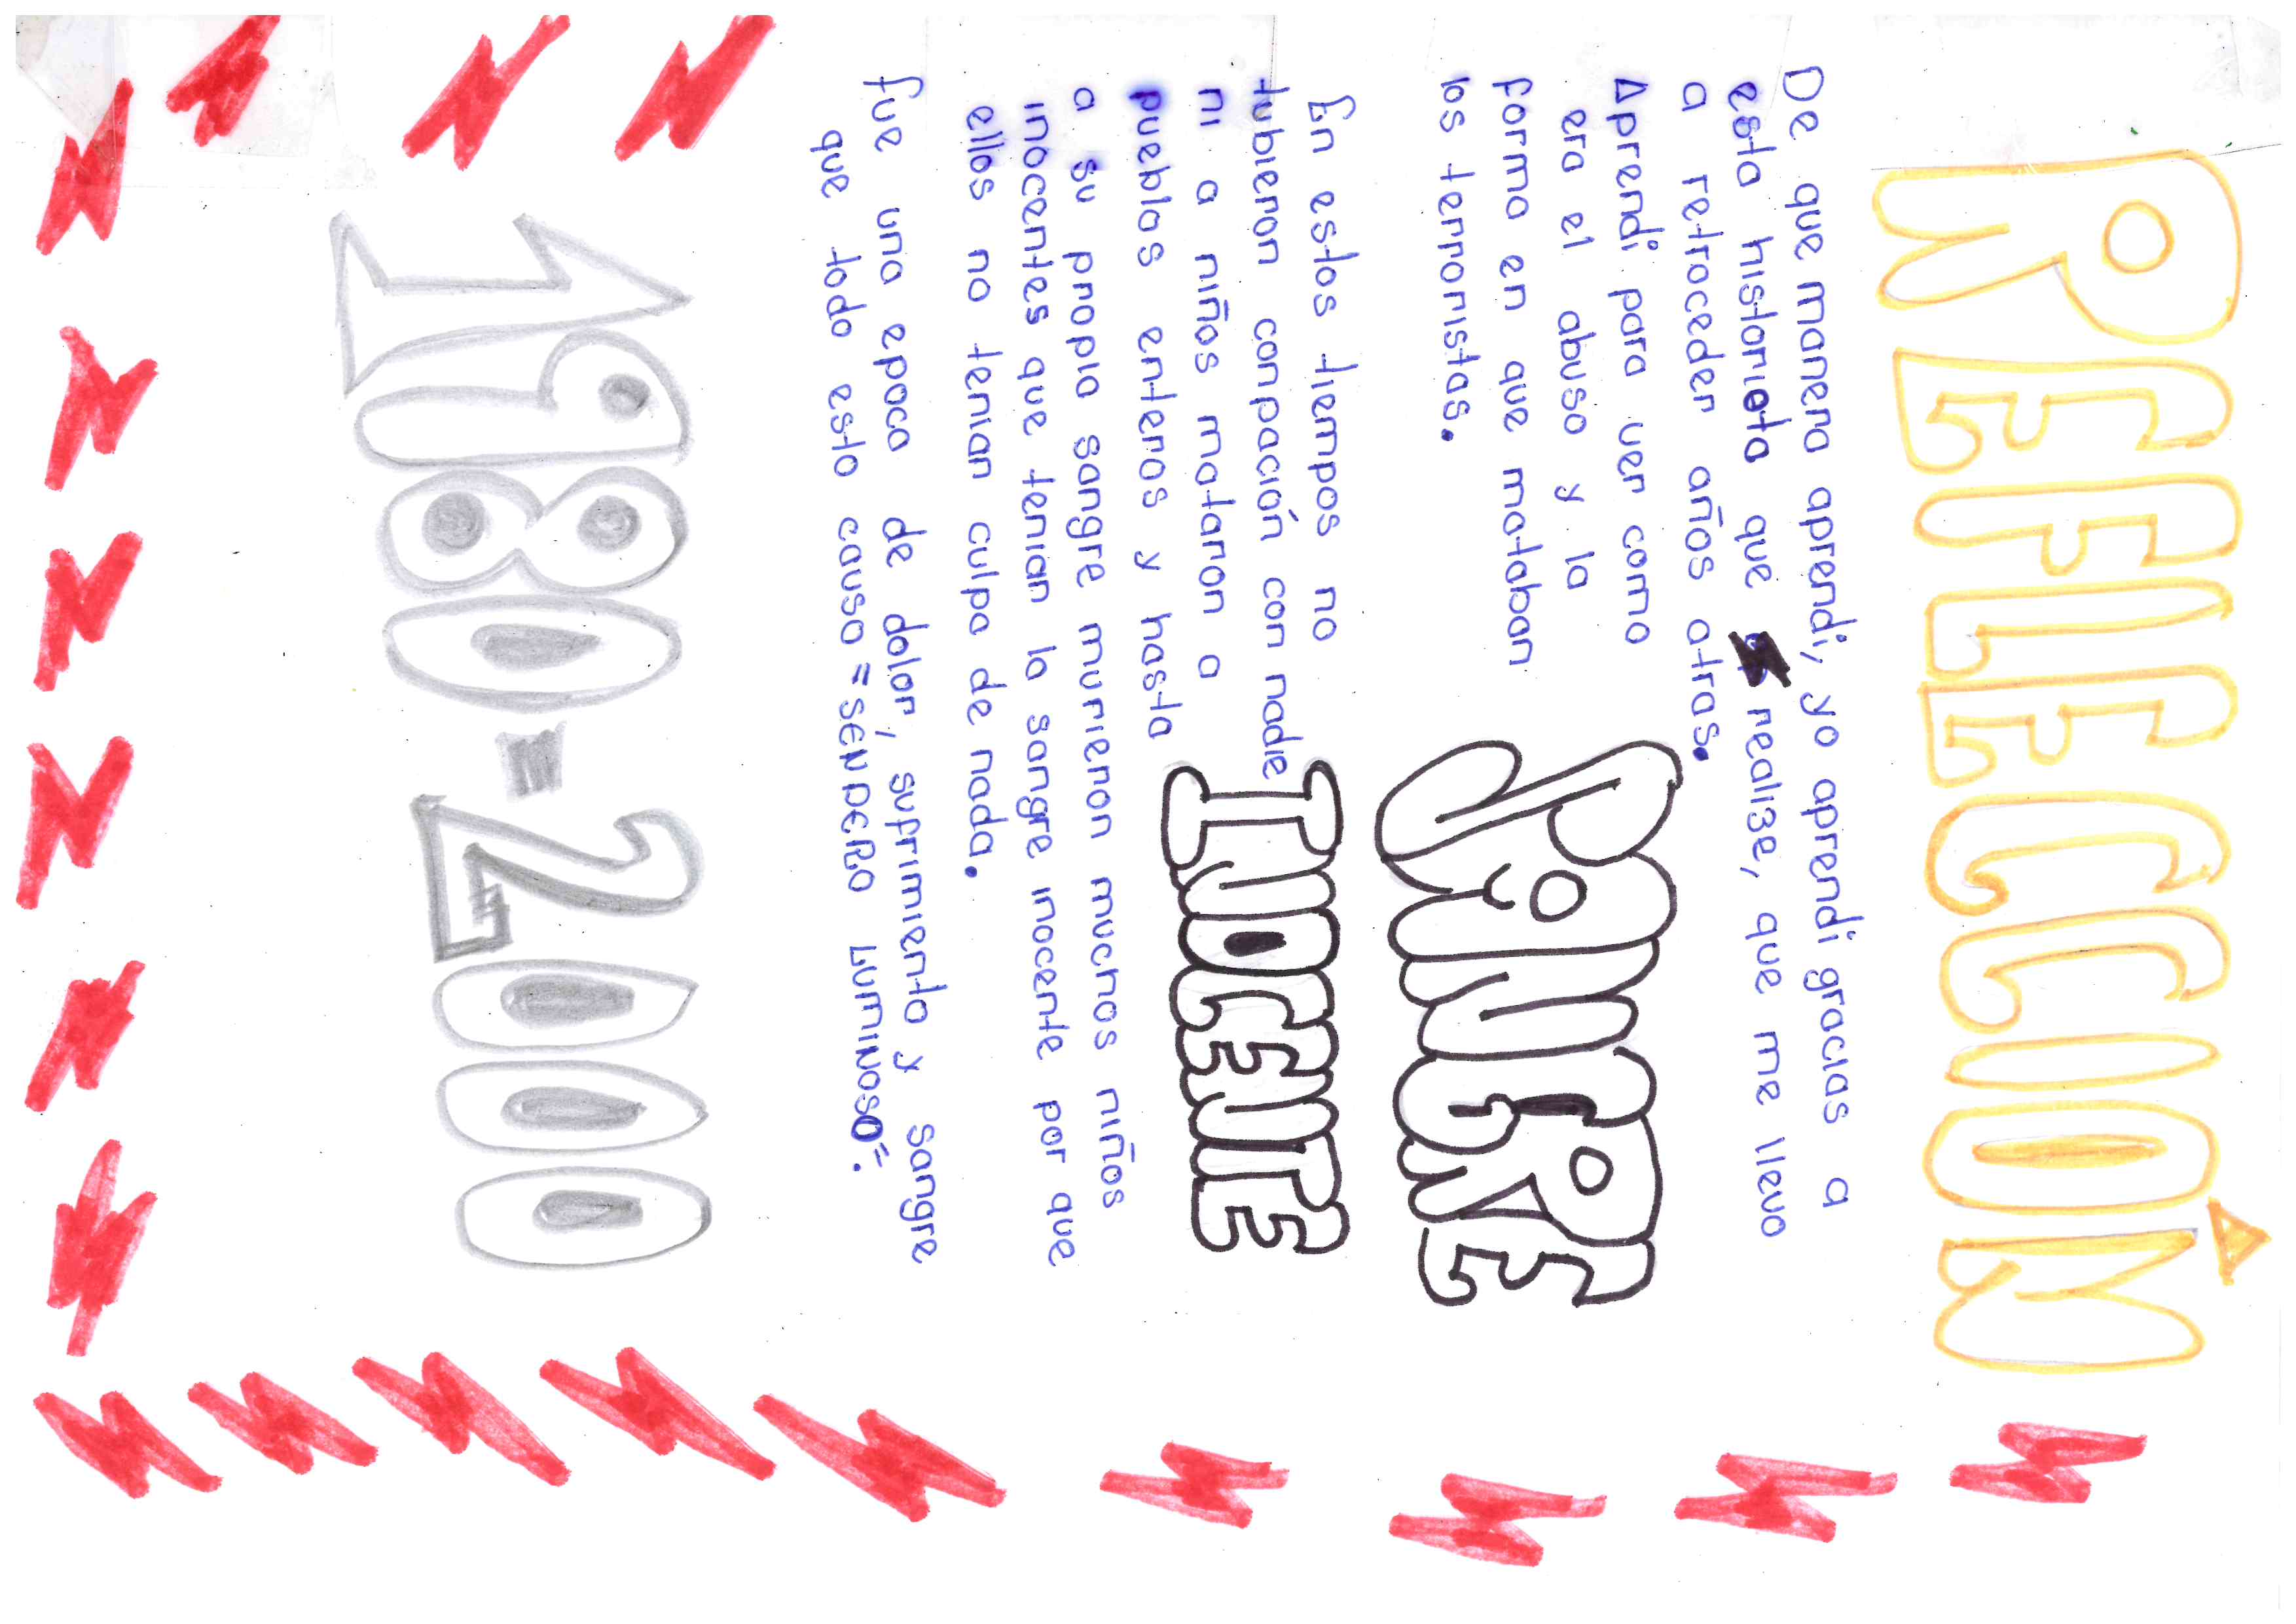 REFLECCIÓN
De que manera aprendi, yo aprendi gracias a
esta historieta que realize, que me llevo
a retroceder años atras.
Aprendi para ver como
era el abuso y la
forma en que mataban
los terroristas.
SANGRE
INOCENTE
En estos tiempos no
tubieron conpación con nadie
ni a niños mataron a
pueblos enteros y hasta
a su propia sangre murieron muchos niños
inocentes que tenian la sangre inocente por que
ellos no tenian culpa de nada.
fue una epoca de dolor, sufrimiento y sangre
que todo esto causo = SENDERO LUMINOSO=.
1980-2000